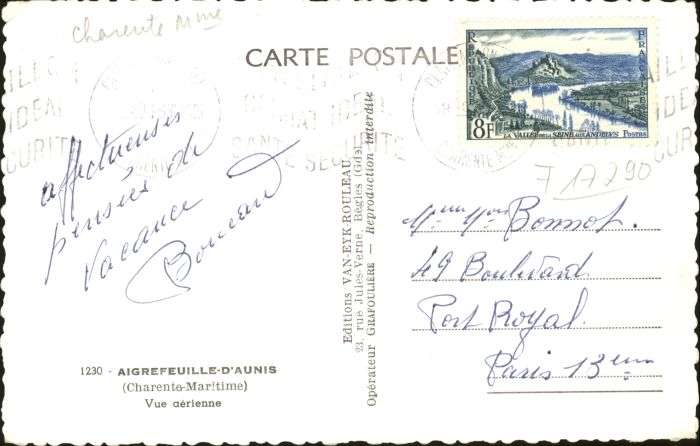 Charente Mme
CARTE POSTALE
RÉPUBLIQUE FRANÇAISE
8F
LA VALLÉE DE LA SEINE AUX ANDELYS POSTES
IDEAL
SÉCURITÉ
F 17290
affectueuses
pensées de
vacance
Editions VAN-EYK-ROULEAU
23, rue Jules-Verne, Bègles (Gde)
Opérateur GRAFOULIÈRE — Reproduction interdite
Bonnot.
49 Boulevard
Port Royal
Paris 13eme
1230 - AIGREFEUILLE-D'AUNIS
(Charente-Maritime)
Vue aérienne